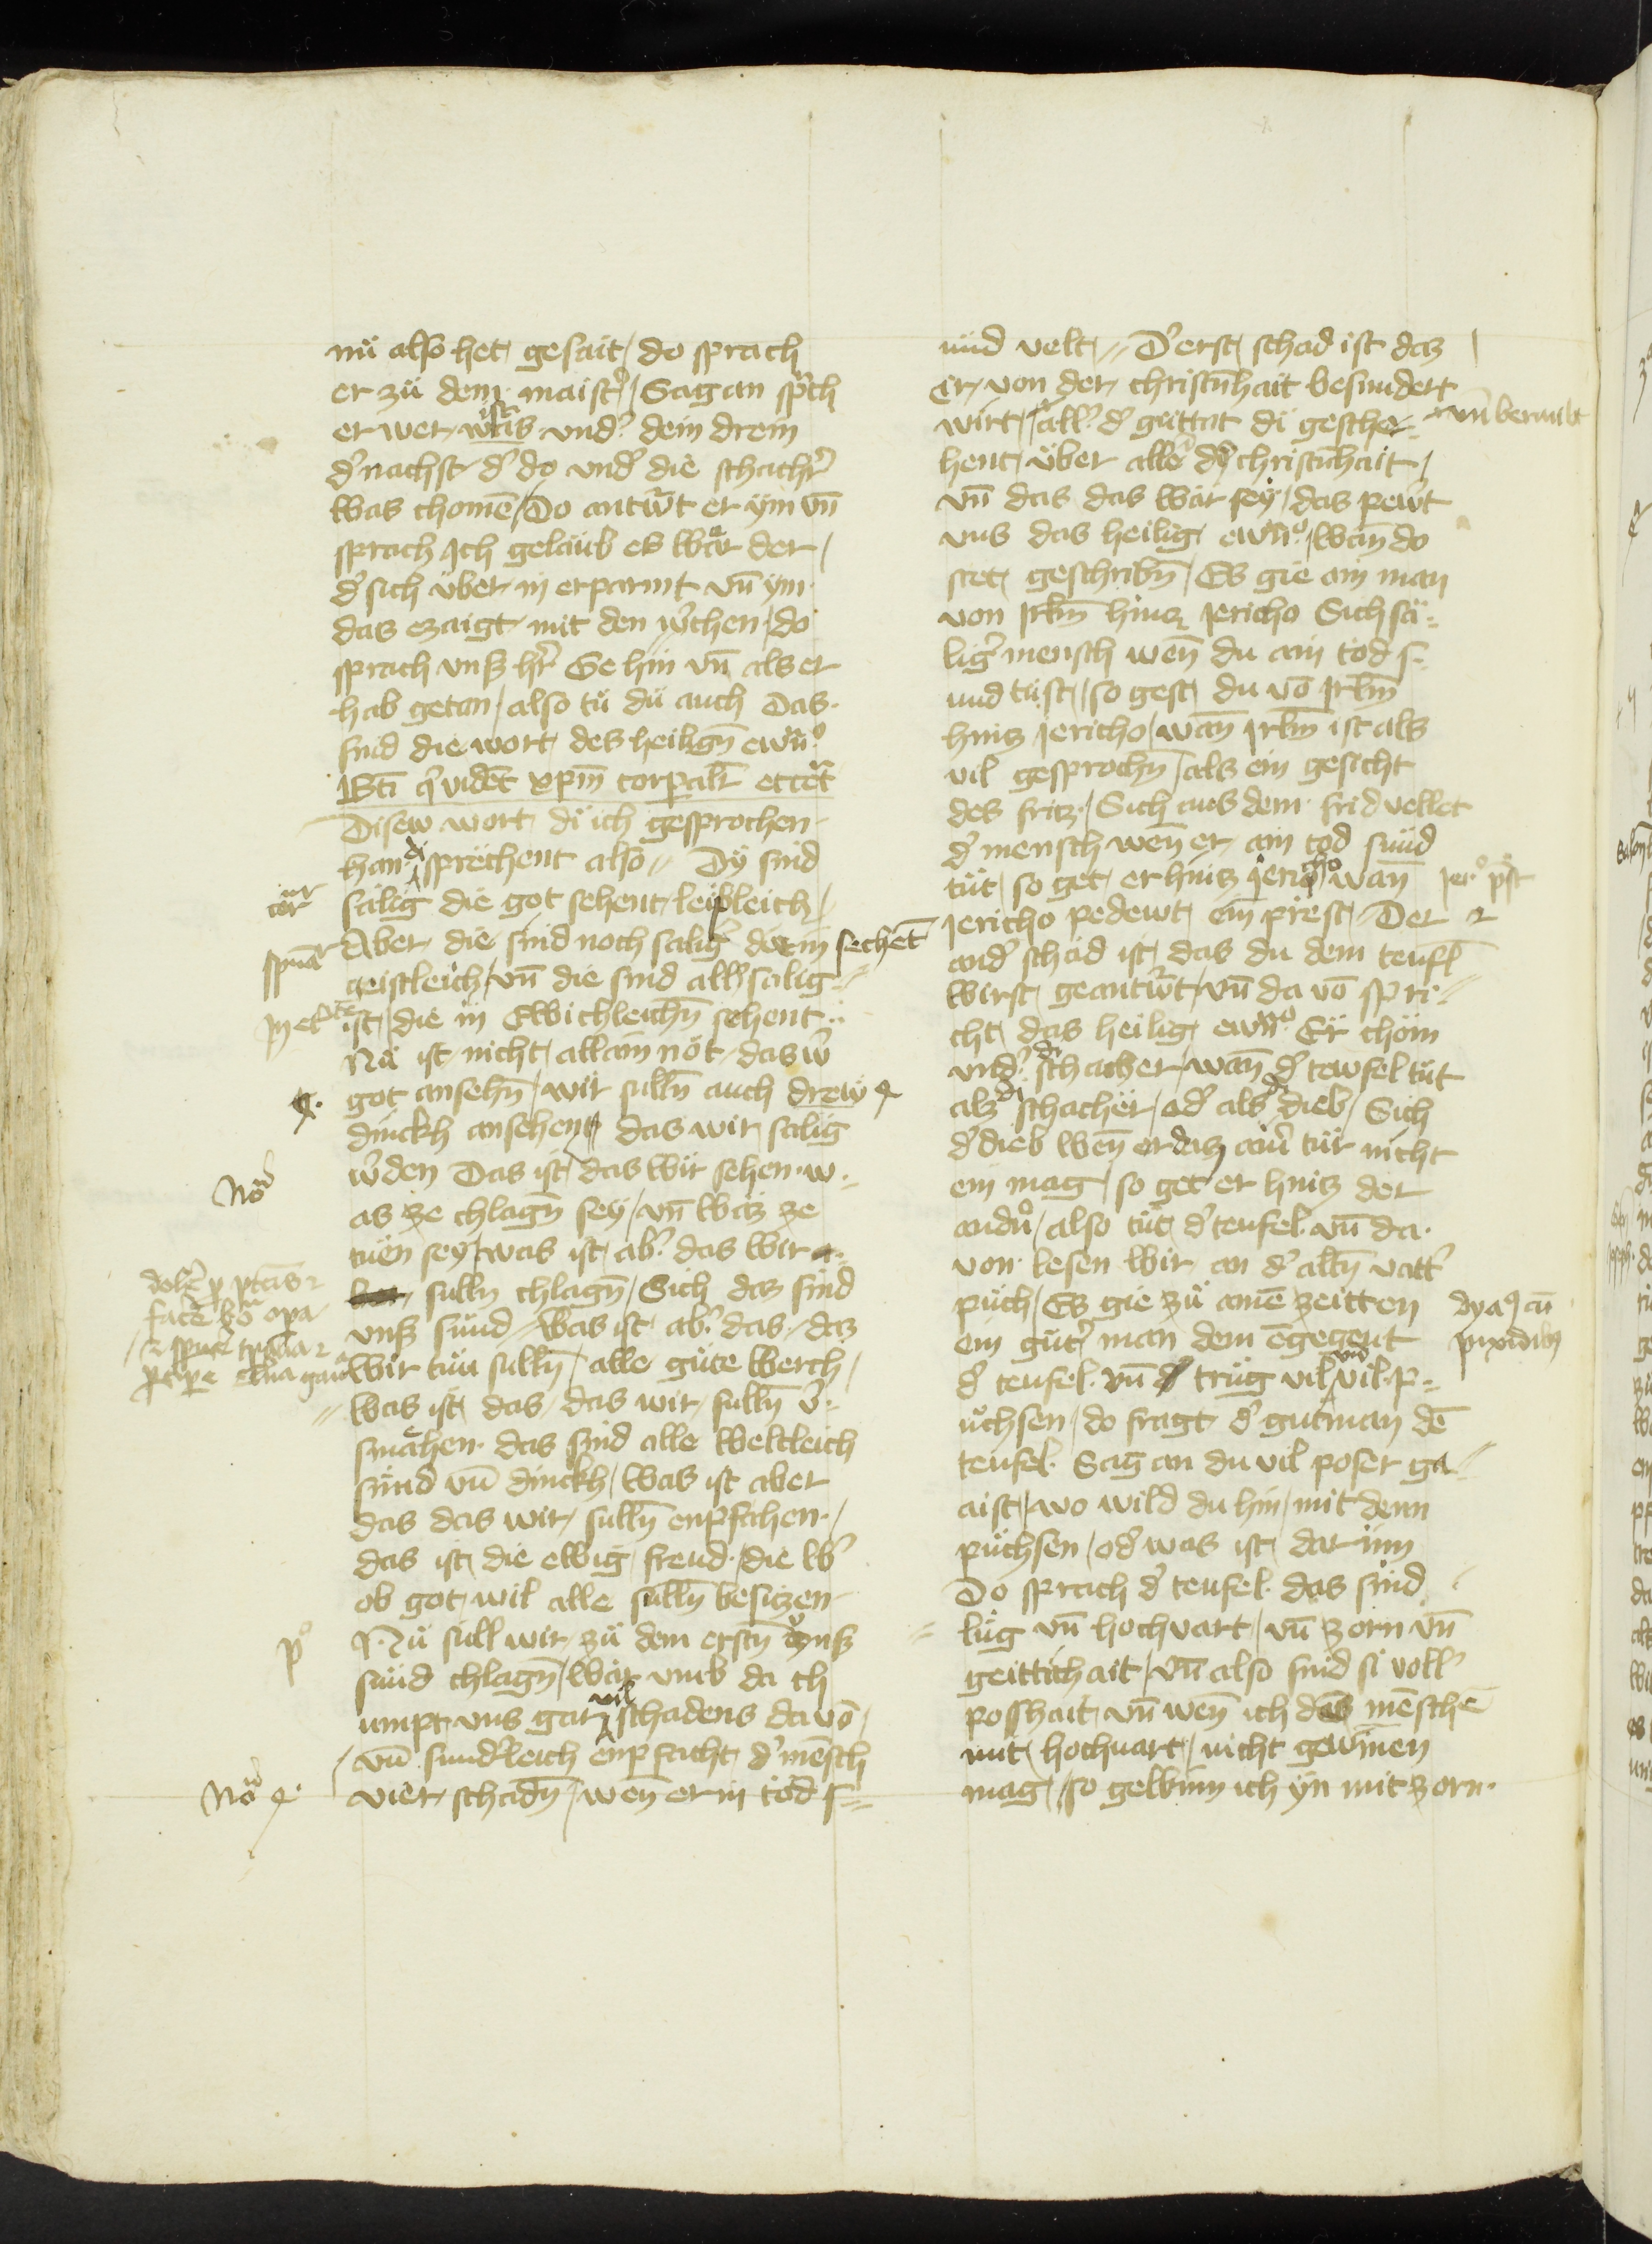 nu also het gesait / do sprach
er zu dem maistˀ / Sag an sp̄ch
er wer was ist undˀ dein drein
dˀ nachst dˀ do undˀ die schachˀ
was chomē / Do antw̄t er ym vn̄
sprach Ich gelaub es war der /
dˀ sich uber in erparmt vn̄ ym
das erzaigt mit den w̄chen / do
sprach vnsˀ hˀr Ge hin vn̄ als er
hab getan / also tu du auch Das
sind die wort des heilign̄ ewāͦ
Bti q̄ vidēt xpm̄ corpalr̄ etcet̄
Disew wort di ich gesprochen
han di sprechent also Dy sind
salig die got sehent leibleich /
Aber die sind noch saligˀ die in sechēt
geistleich / vn̄ die sind allˀ salig=
ist / die in ewichleichn̄ sehent
Nu ist nicht allain not das wˀ
got ansehn̄ / wir sulln̄ auch drew
dinckh ansehen das wir salig
wˀden Das ist / das wir sehen w=
as ze chlagn̄ sey / vn̄ was ze
tuen sey / was ist abˀ das wir
sulln chlagn̄ / Sich das sind
vnsˀ sund / Was ist abˀ das / das
wir tun sulln̄ / alle gute werch /
was ist das / das wir sulln̄ vˀ=
smahen das sind alle weltleich
sund vn̄ dinckh / Was ist aber
das das wir sulln̄ enpfahen /
das ist die ewig freud / die wˀ
ob got wil alle sulln̄ besitzen
Nu sull wir zu dem erstn̄ vnsˀ
sund chlagn̄ / war umb da ch
umpt uns gar vil schadens da vō /
vn̄ sundˀleich enpfacht dˀ mēsch
vier schadn̄ / wen̄ er in tod s=
tˀor
spuāˀ
In etˀ
Noͣ
dolēˀ p̄ pctāis
facē bōͣ opa
Noͣ 4
pͦ
und velt // Dˀ erst schad ist das
er / von der christn̄hait besundert
wirt / allˀ dˀ guttat di gesche- vn̄ beraubt
hent uber allē dy christn̄hait /
vn̄ das das war sey / das pewt
uns das heilig ewāͦ / wan̄ do
stet geschribn̄ / Es gie ain man
von Irlm̄ hincz Iericho Sich sä=
ligˀ mensch wen̄ du ain tod s=
und tust / so gest du vō Irlm̄
hincz Iericho / wan̄ Irlm̄ ist als
vil gesprochn̄ / als ein gesicht
des fritz / Sich aus dem frid vellet
dˀ mensch wen̄ er ain tod sund
tut / so get er hincz iericho wan̄
Iericho pedewt ein prest / Der
andˀ schad ist / das du dem teufl
wirst geantw̄t / vn̄ da vō spri=
cht das heilig ewāͦ Er chom
undˀ di schacher / wan̄ dˀ tewfel tut
als di schacher / odˀ als di dieb / Sich
dˀ dieb wen̄ er das ainˀ tur nicht
ein mag / so get er hincz der
andn̄ / also tut dˀ teufel vn̄ da
von lesen wir an dˀ altn̄ vattˀ
puch / Es gie zu ainē zeitten
ein gutˀ man dem ēgegent
dˀ teufel vn̄ trug vil und vil p=
uchsen / do fragt dˀ gut man dē
teufel Sag an du vil poser ga=
aist / wo wild du hin / mit denn
puchsen / odˀ was ist dar inn
Do sprach dˀ teufel das sind
lug vn̄ hochvart / vn̄ zorn vn̄
geittichait / vn̄ also sind si vollˀ
poshait vn̄ wen̄ ich das mēschē
mit hochvart / nicht gewinen
mag / so gewinn ich yn mit zorn
Ierͦ pͦst
dyaꝰ cū
pixidibꝫ